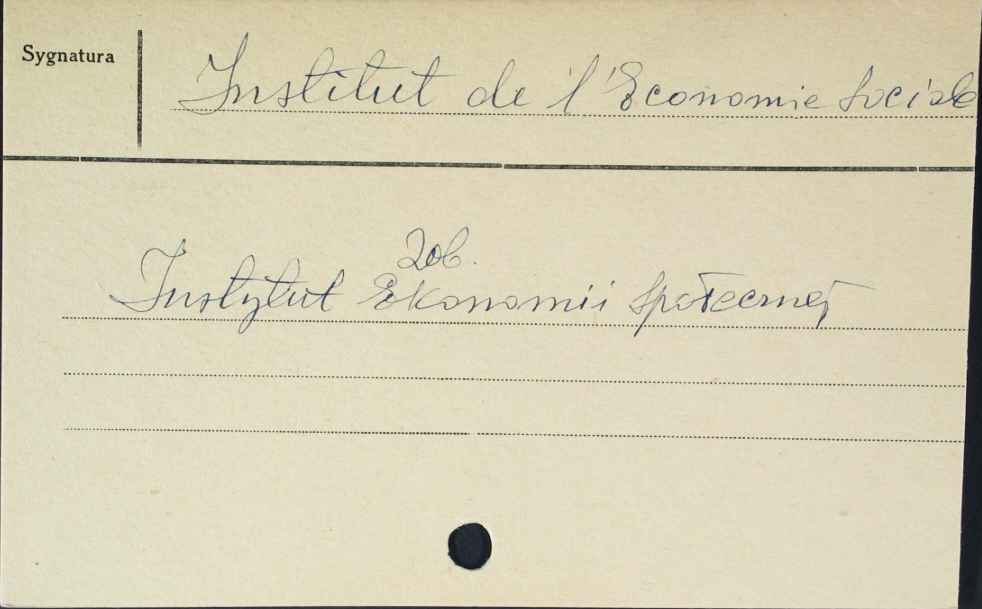 Sygnatura
Institut de l'Economie Sociale
Zob.
Instytut Ekonomii Społecznej